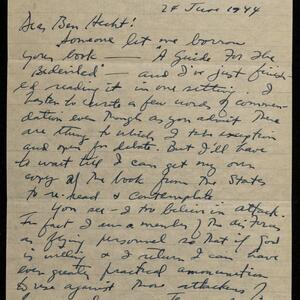 24 June 1944
Dear Ben Hecht:
Someone let me borrow
your book — "A Guide For the
Bedeviled" — and I've just finish-
ed reading it in one setting. I
hasten to write a few words of commen-
dation even though as you admit there
are things to which I take exception
and open for debate. But I'll have
to wait till I can get my own
copy of the book from the States
to re-read & contemplate
You see – I too believe in attack.
In fact I am a member of the air forces
as flying personnel so that if God
is willing & I return I can have
even greater practical ammunition
to use against those attackers of